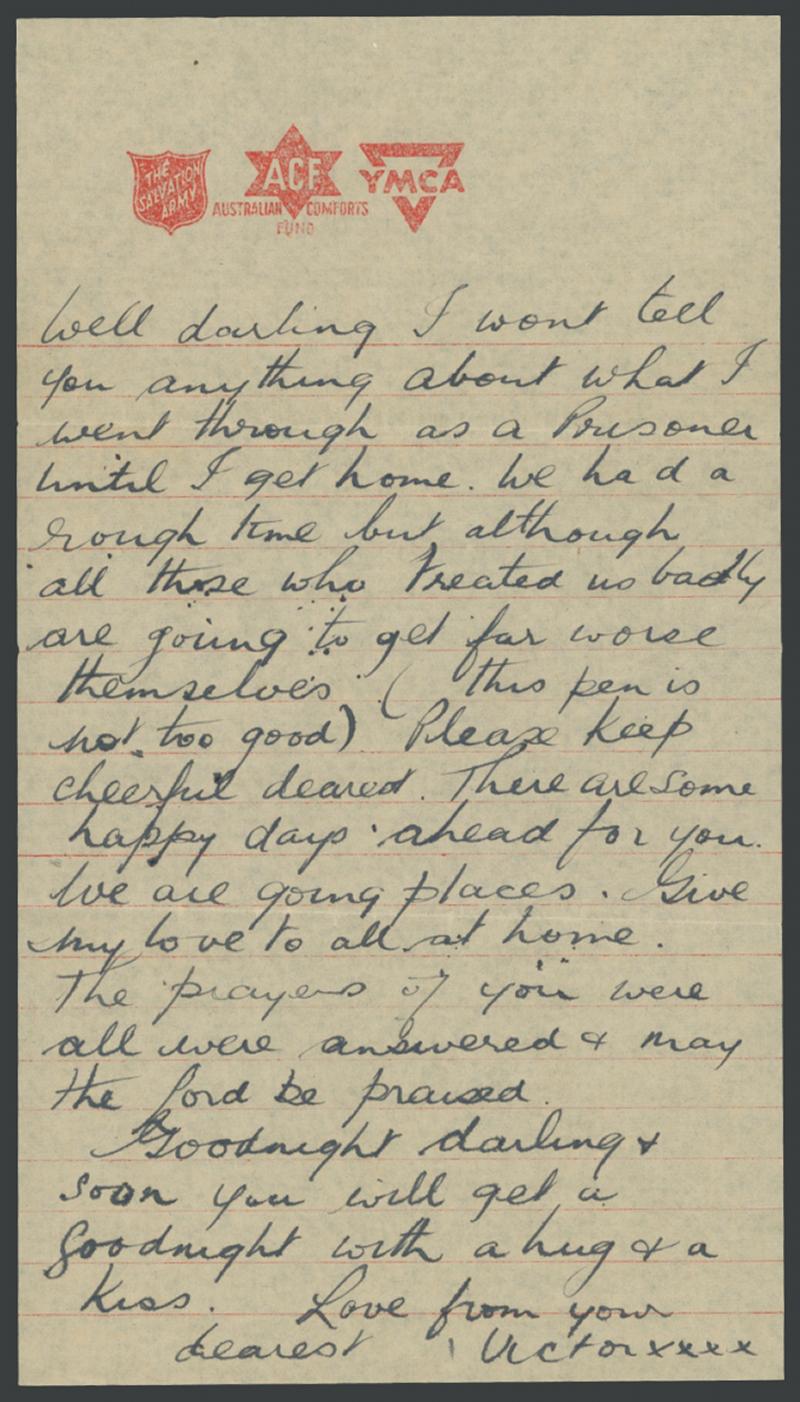 THE
SALVATION
ARMY
ACF
AUSTRALIAN COMFORTS
FUND
YMCA
Well darling I wont tell
you anything about what I
went through as a Prisoner
until I get home. We had a
rough time but although
all those who treated us badly
are going to get far worse
themselves (this pen is
not too good) Please keep
cheerful dearest. There are some
happy days ahead for you.
We are going places. Give
my love to all at home.
The prayers of you were
all were answered & may
the Lord be praised.
Goodnight darling &
soon you will get a
Goodnight with a hug & a
Kiss. Love from your
dearest Victor xxxx